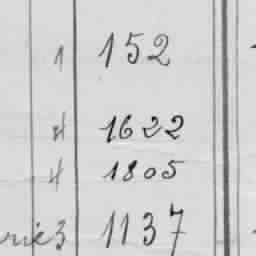 1 152
4 1622
4 1805
3 1137